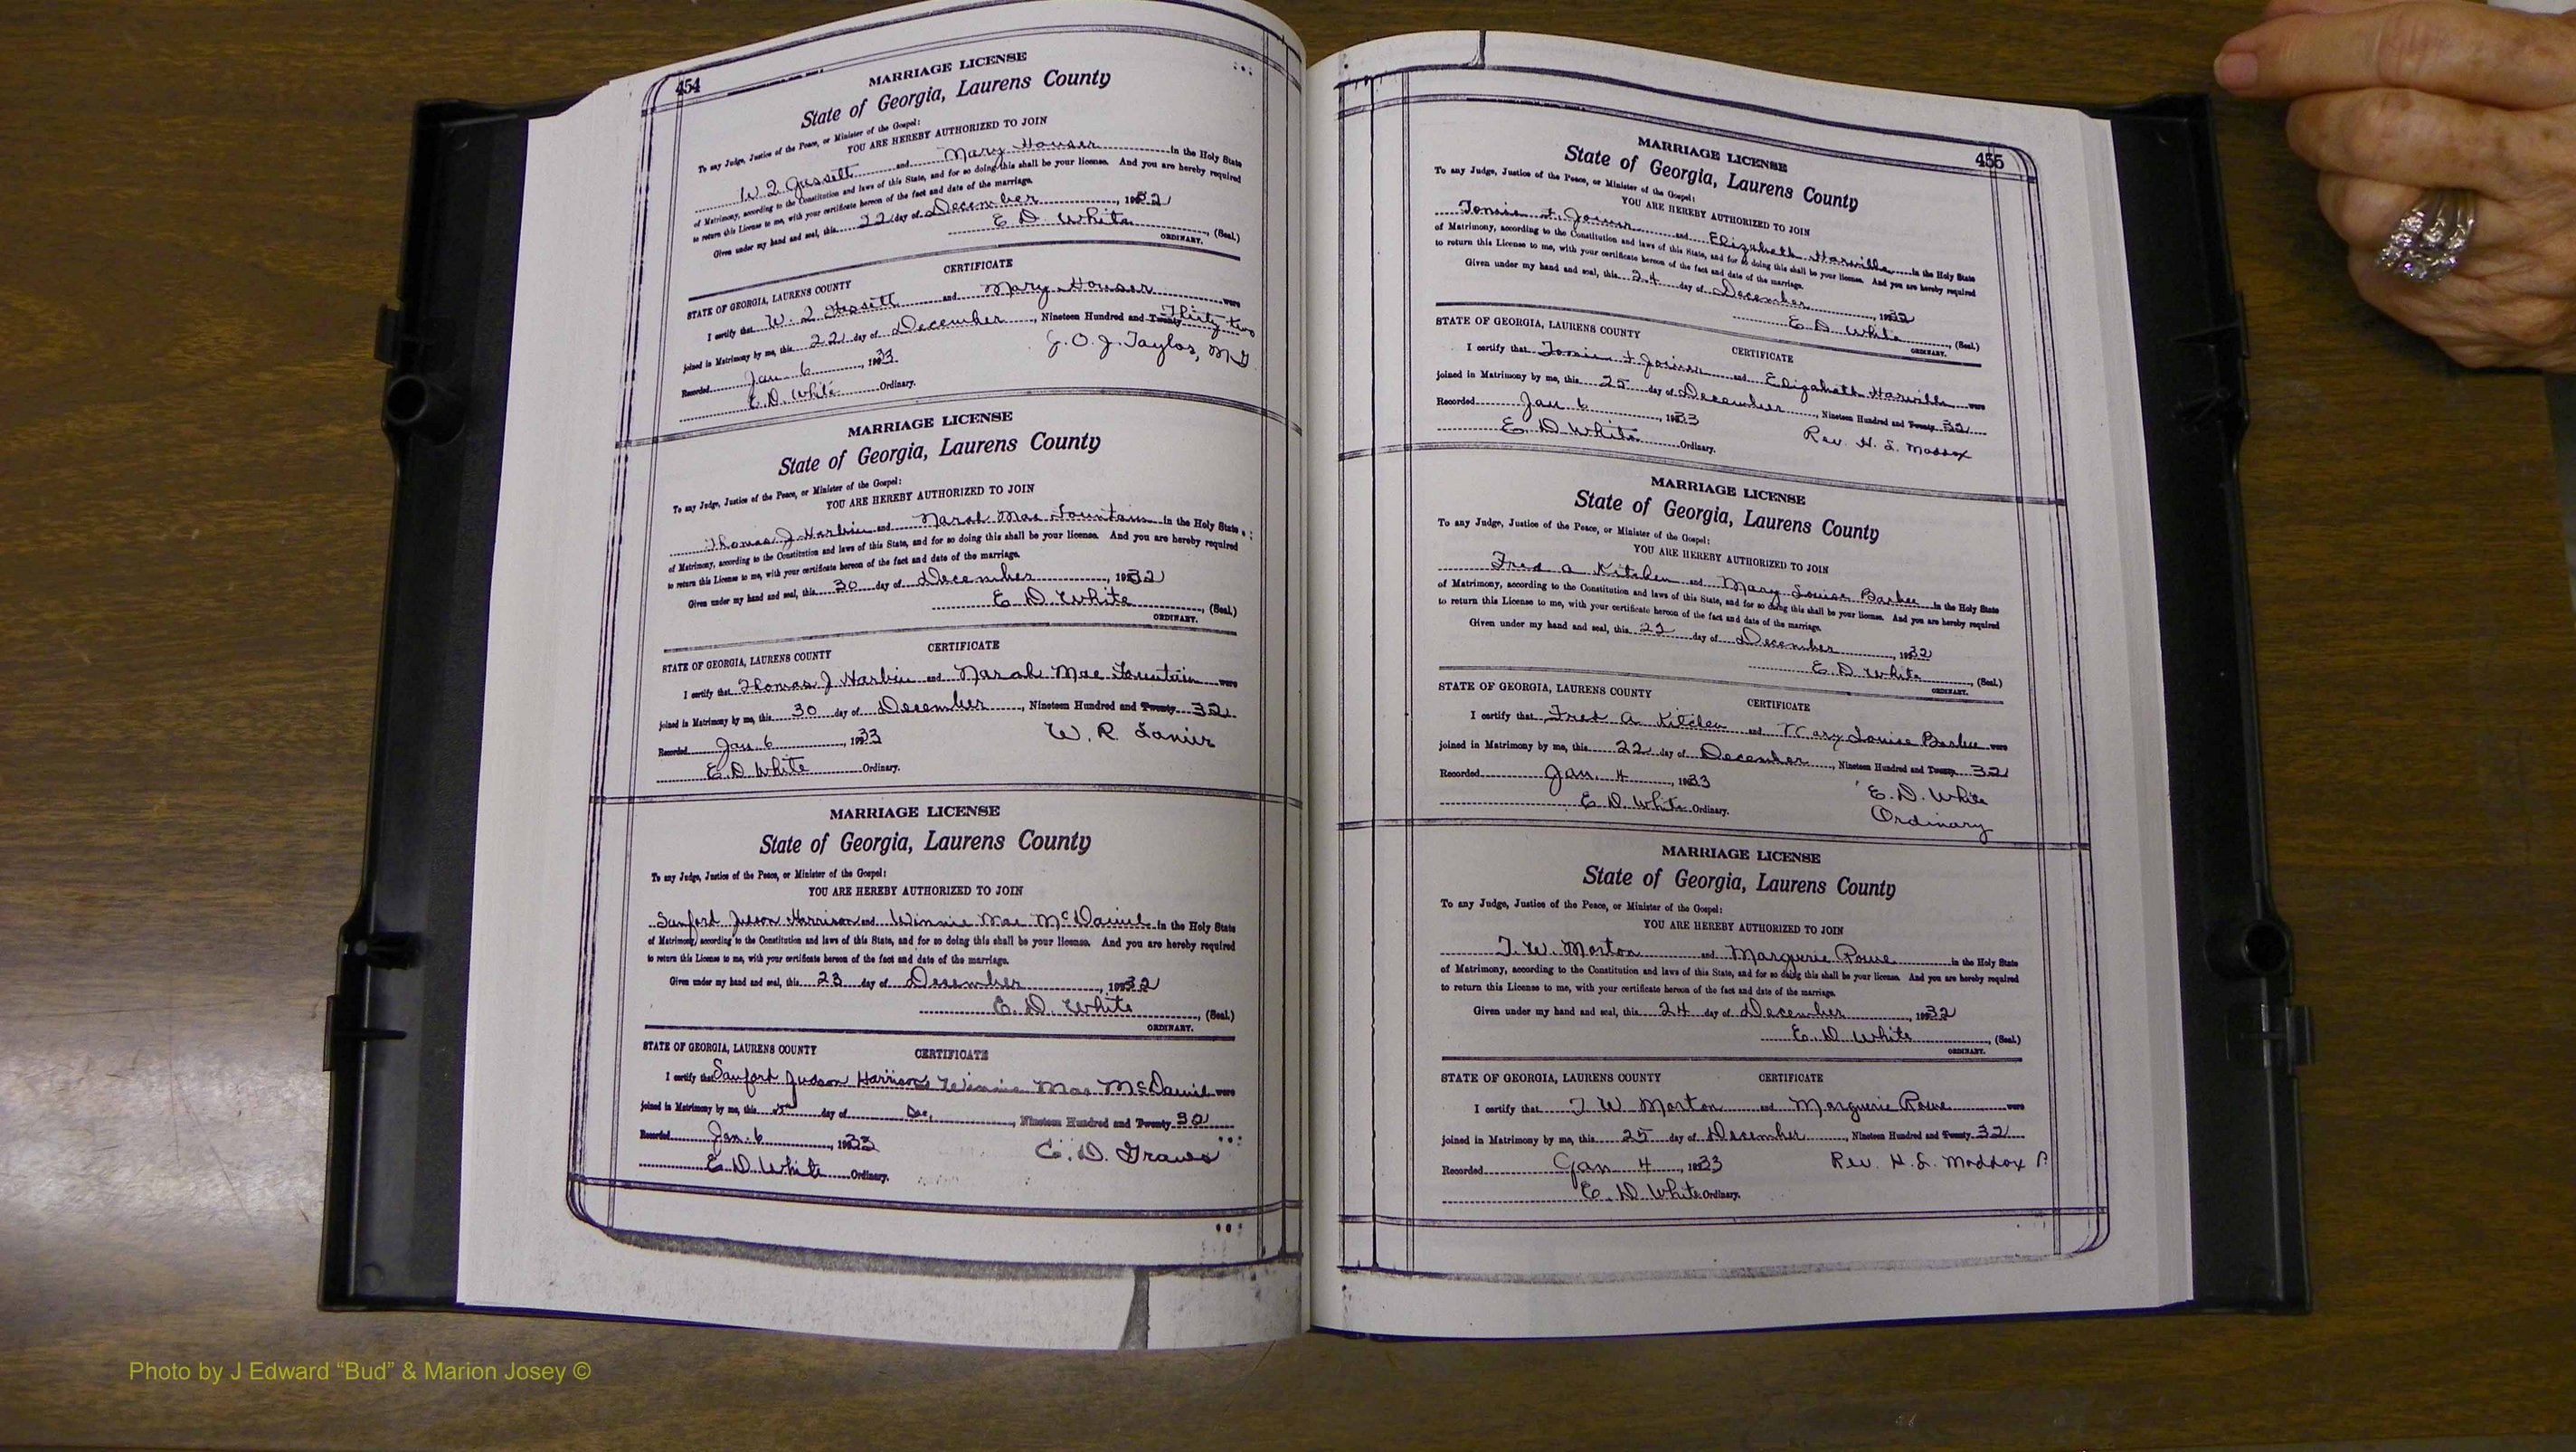 454
MARRIAGE LICENSE
State of Georgia, Laurens County
To any Judge, Justice of the Peace, or Minister of the Gospel:
YOU ARE HEREBY AUTHORIZED TO JOIN
W. L. and Mary Houser in the Holy State
of Matrimony, according to the Constitution and laws of this State, and for so doing this shall be your license. And you are hereby required
to return this License to me, with your certificate hereon of the fact and date of the marriage.
Given under my hand and seal, this 22 day of December, 1932
E. D. White, (Seal.)
ORDINARY.
CERTIFICATE
STATE OF GEORGIA, LAURENS COUNTY
I certify that W. L. and Mary Houser were
joined in Matrimony by me, this 22 day of December, Nineteen Hundred and Twenty Thirty two
J. O. J. Taylor, M G
Recorded Jan 6, 1933
E. D. White Ordinary.
MARRIAGE LICENSE
State of Georgia, Laurens County
To any Judge, Justice of the Peace, or Minister of the Gospel:
YOU ARE HEREBY AUTHORIZED TO JOIN
Thomas J Harbin and Narah Mae Fountain in the Holy State
of Matrimony, according to the Constitution and laws of this State, and for so doing this shall be your license. And you are hereby required
to return this License to me, with your certificate hereon of the fact and date of the marriage.
Given under my hand and seal, this 30 day of December, 1932
E D White, (Seal.)
ORDINARY.
CERTIFICATE
STATE OF GEORGIA, LAURENS COUNTY
I certify that Thomas J Harbin and Narah Mae Fountain were
joined in Matrimony by me, this 30 day of December, Nineteen Hundred and Twenty 32
W. R. Lanier
Recorded Jan. 6, 1933
E. D. White Ordinary.
MARRIAGE LICENSE
State of Georgia, Laurens County
To any Judge, Justice of the Peace, or Minister of the Gospel:
YOU ARE HEREBY AUTHORIZED TO JOIN
Sanford Judson Harrison and Winnie Mae McDaniel in the Holy State
of Matrimony, according to the Constitution and laws of this State, and for so doing this shall be your license. And you are hereby required
to return this License to me, with your certificate hereon of the fact and date of the marriage.
Given under my hand and seal, this 23 day of December, 1932
E. D. White, (Seal.)
ORDINARY.
STATE OF GEORGIA, LAURENS COUNTY CERTIFICATE
I certify that Sanford Judson Harrison & Winnie Mae McDaniel were
joined in Matrimony by me, this day of Dec., Nineteen Hundred and Twenty 30
C. D. Graves
Recorded Jan. 6, 1933
E. D. White Ordinary.
455
MARRIAGE LICENSE
State of Georgia, Laurens County
To any Judge, Justice of the Peace, or Minister of the Gospel:
YOU ARE HEREBY AUTHORIZED TO JOIN
Tomie F. Joiner and Elizabeth Harville in the Holy State
of Matrimony, according to the Constitution and laws of this State, and for so doing this shall be your license. And you are hereby required
to return this License to me, with your certificate hereon of the fact and date of the marriage.
Given under my hand and seal, this 24 day of December, 1932
E. D. White, (Seal.)
ORDINARY.
STATE OF GEORGIA, LAURENS COUNTY CERTIFICATE
I certify that Tomie F Joiner and Elizabeth Harville were
joined in Matrimony by me, this 25 day of December, Nineteen Hundred and Twenty 32
Recorded Jan 6, 1933 Rev. H. L. Maddox
E. D White Ordinary.
MARRIAGE LICENSE
State of Georgia, Laurens County
To any Judge, Justice of the Peace, or Minister of the Gospel:
YOU ARE HEREBY AUTHORIZED TO JOIN
Fred A Kitchen and Mary Louise Barbee in the Holy State
of Matrimony, according to the Constitution and laws of this State, and for so doing this shall be your license. And you are hereby required
to return this License to me, with your certificate hereon of the fact and date of the marriage.
Given under my hand and seal, this 22 day of December, 1932
E. D. White, (Seal.)
ORDINARY.
STATE OF GEORGIA, LAURENS COUNTY CERTIFICATE
I certify that Fred A Kitchen and Mary Louise Barbee were
joined in Matrimony by me, this 22 day of December, Nineteen Hundred and Twenty 32
Recorded Jan. 4, 1933 E. D. White
E. D. White Ordinary. Ordinary
MARRIAGE LICENSE
State of Georgia, Laurens County
To any Judge, Justice of the Peace, or Minister of the Gospel:
YOU ARE HEREBY AUTHORIZED TO JOIN
T. W. Morton and Marguerie Rowe in the Holy State
of Matrimony, according to the Constitution and laws of this State, and for so doing this shall be your license. And you are hereby required
to return this License to me, with your certificate hereon of the fact and date of the marriage.
Given under my hand and seal, this 24 day of December, 1932
E. D White, (Seal.)
ORDINARY.
STATE OF GEORGIA, LAURENS COUNTY CERTIFICATE
I certify that T W Morton and Marguerie Rowe were
joined in Matrimony by me, this 25 day of December, Nineteen Hundred and Twenty 32
Recorded Jan 4, 1933 Rev. H. L. Maddox
E. D. White Ordinary.
Photo by J Edward “Bud” & Marion Josey ©